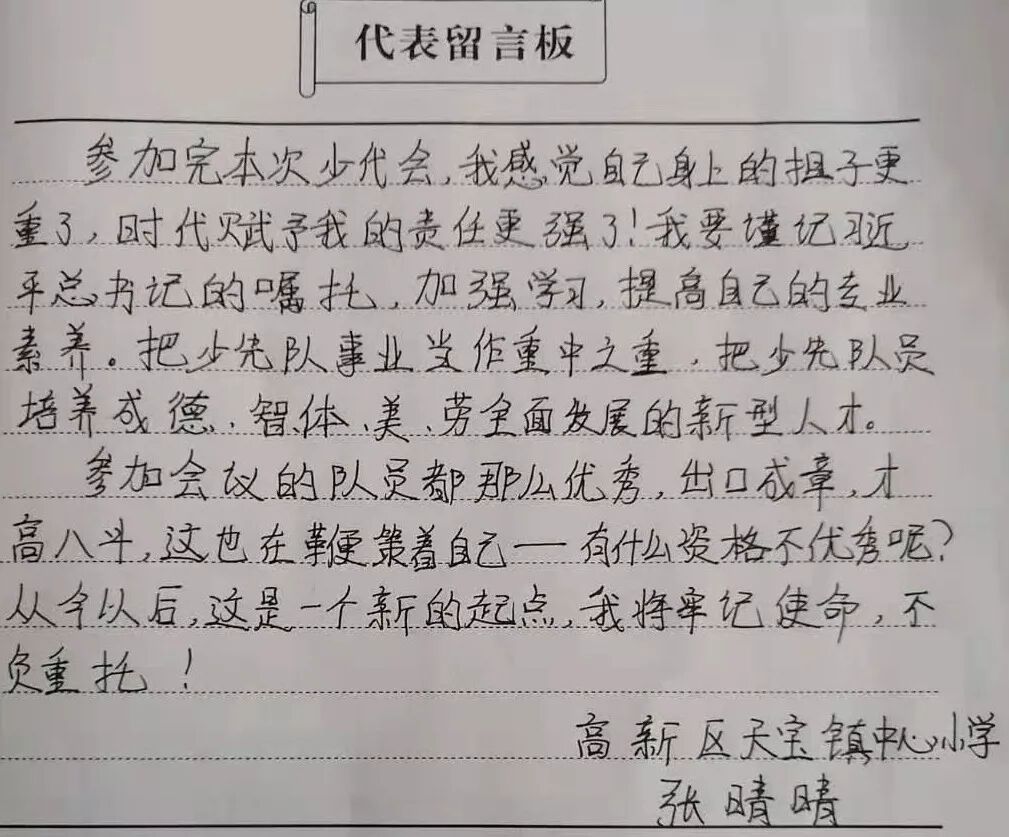 代表留言板
参加完本次少代会,我感觉自己身上的担子更
重了,时代赋予我的责任更强了!我要谨记习近
平总书记的嘱托,加强学习,提高自己的专业
素养。把少先队事业当作重中之重,把少先队员
培养成德、智、体、美、劳全面发展的新型人才。
参加会议的队员都那么优秀,出口成章,才
高八斗,这也在鞭策着自己——有什么资格不优秀呢?
从今以后,这是一个新的起点,我将牢记使命,不
负重托!
高新区天宝镇中心小学
张晴晴